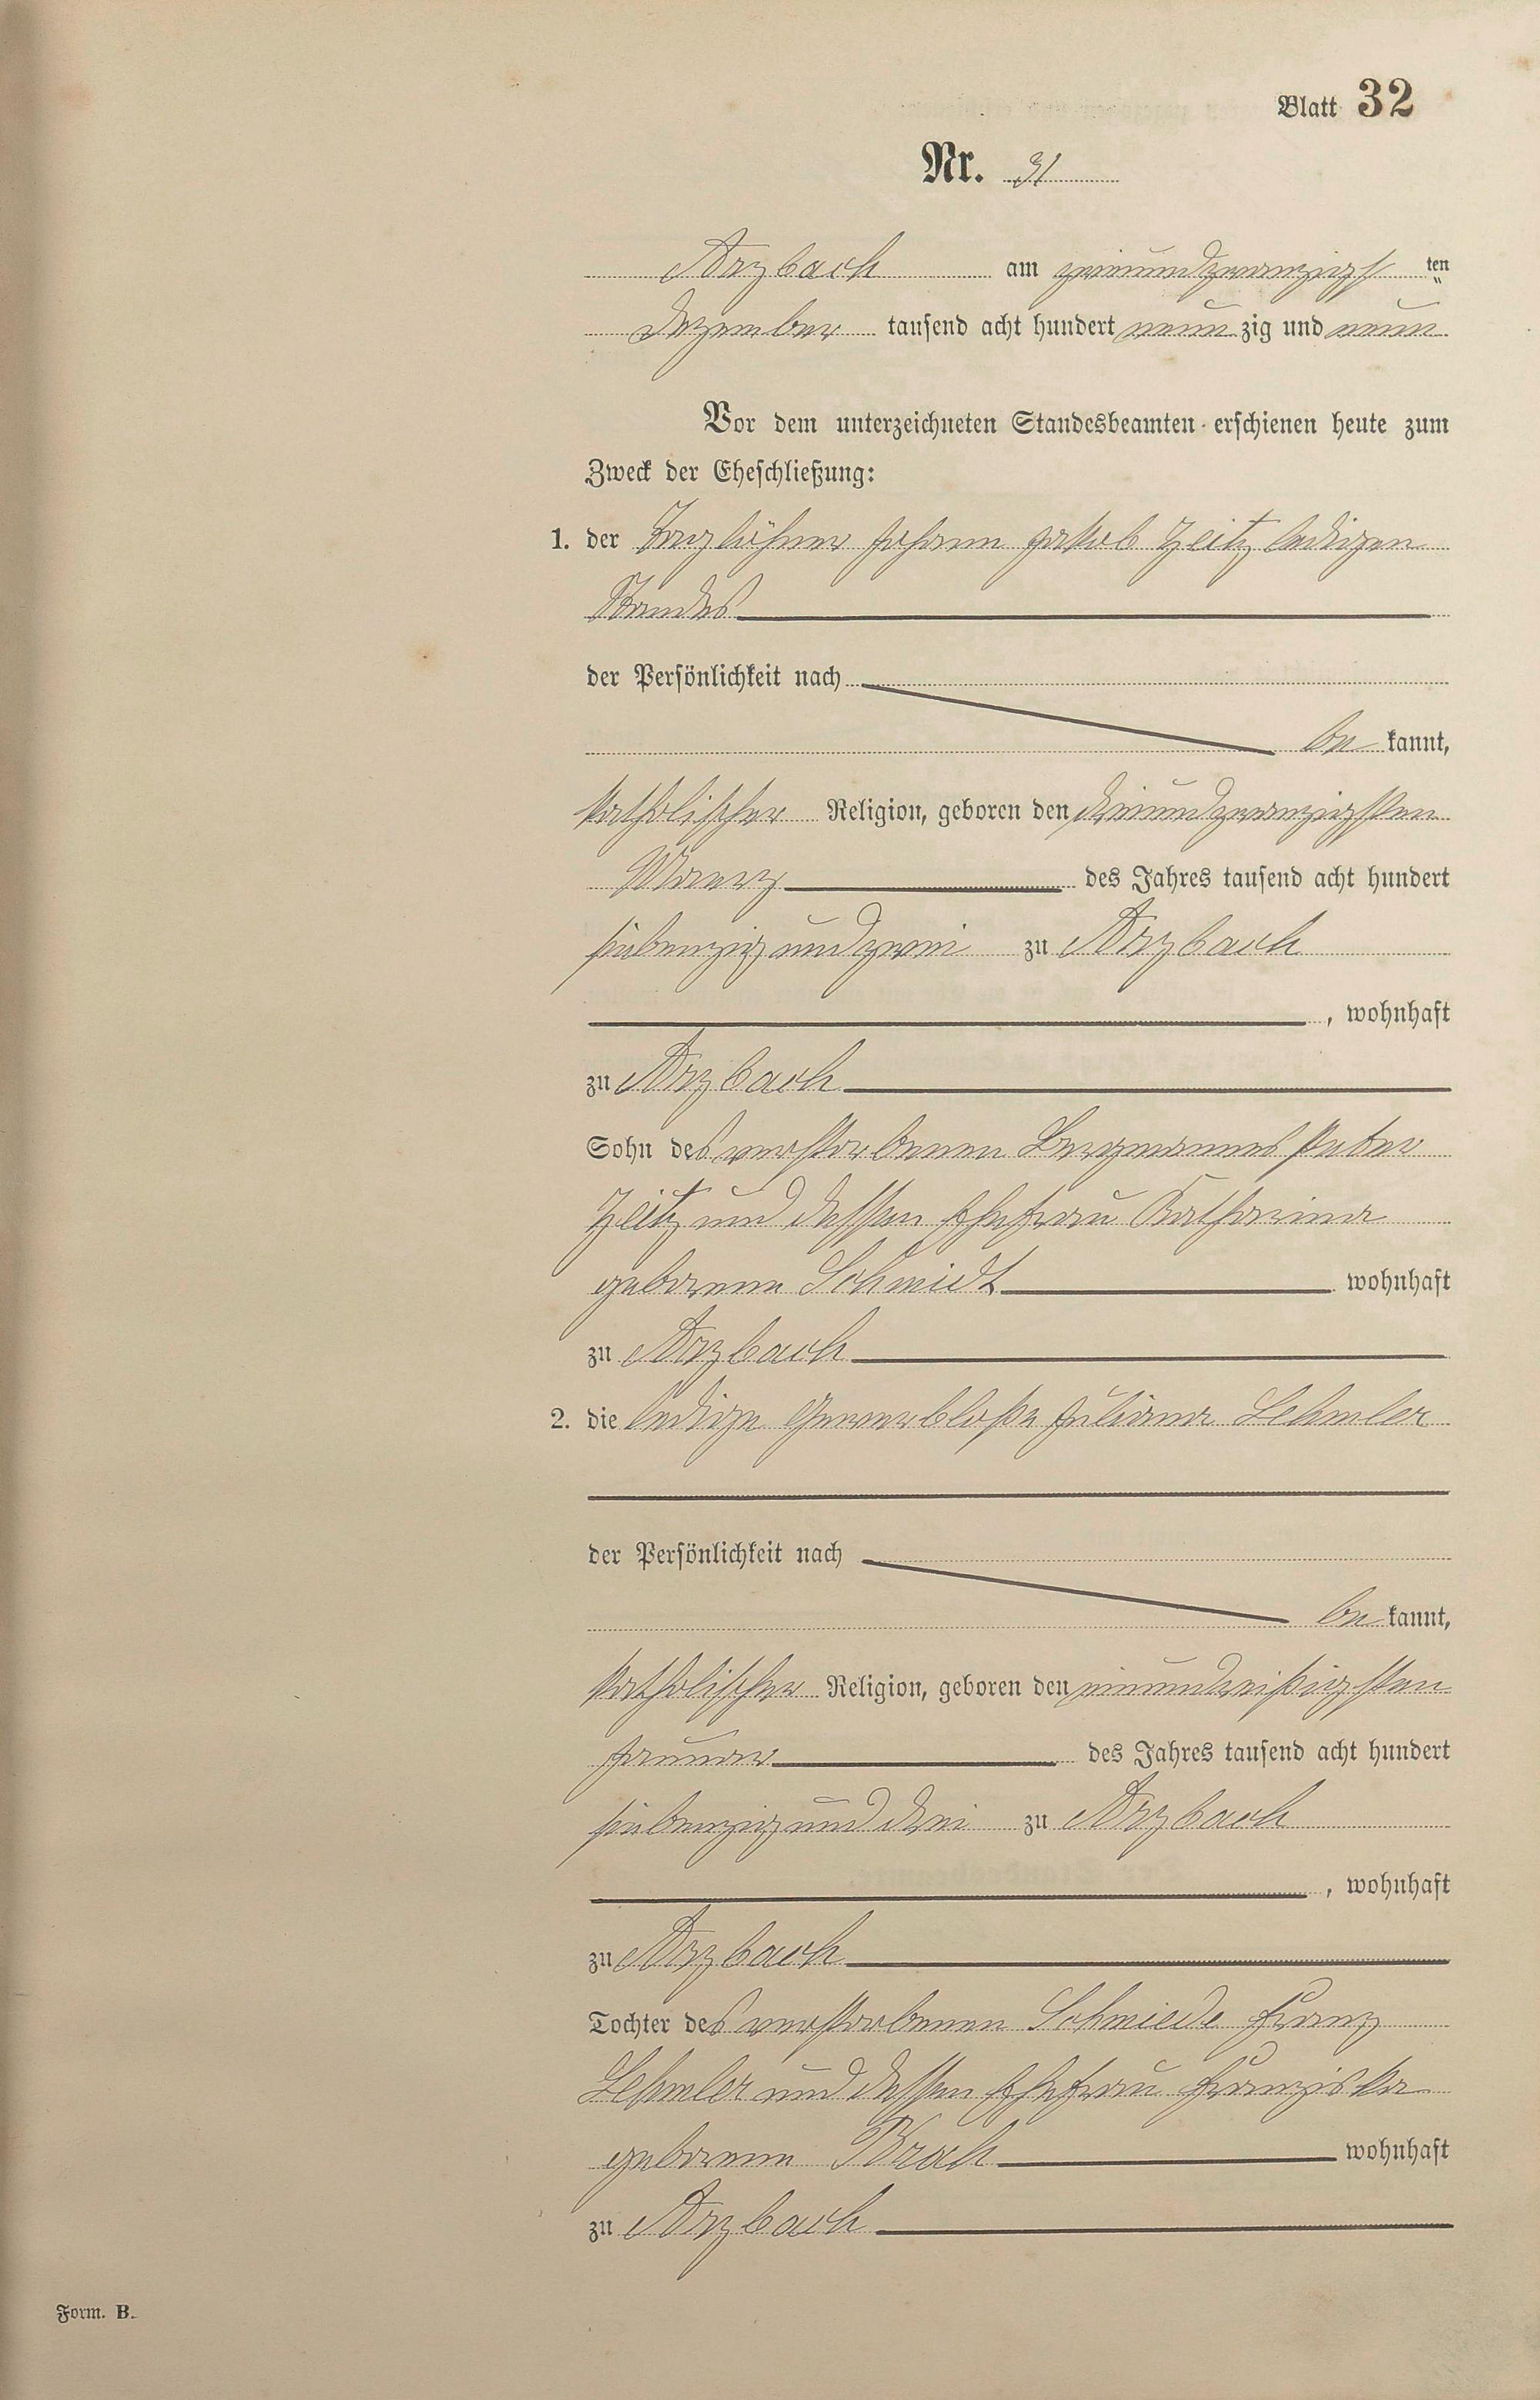 Blatt 32
Nr. 31
Arzbach am zweiundzwanzigsten
Dezember tausend acht hundert neunzig und neun
Vor dem unterzeichneten Standesbeamten erschienen heute zum
Zweck der Eheschließung:
1. der Taglöhner Johann Jakob Zeitz ledigen
Standes
der Persönlichkeit nach
bekannt,
katholischer Religion, geboren den dreiundzwanzigsten
Maerz des Jahres tausend acht hundert
siebenzig und zwei zu Arzbach
, wohnhaft
zu Arzbach
Sohn des verstorbenen Bergmannes Peter
Zeitz und dessen Ehefrau Katharina
geborene Schmidt wohnhaft
zu Arzbach
2. die ledige Gewerblose Juliana Lehmler
der Persönlichkeit nach
bekannt,
katholischer Religion, geboren den einunddreißigsten
Januar des Jahres tausend acht hundert
siebenzig und drei zu Arzbach
, wohnhaft
zu Arzbach
Tochter des verstorbenen Schmiede Franz
Lehmler und dessen Ehefrau Franziska
geborene Brach wohnhaft
zu Arzbach
Form. B.